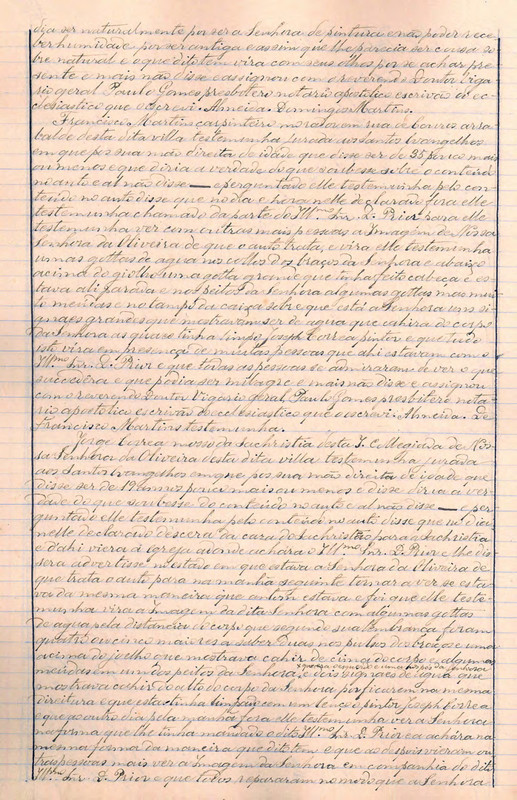 dia ser naturalmente por ser a Senhora de pintura e não poder rece
ber humidade por ser antiga e assim que lhe parecia ser cousa so
bre natural e o que dito tem vira com seus olhos por se achar pre
sente e mais não disse e assignou com o reverendo Doutor Viga
rio geral Paulo Gomes presbitero notario apostolico escrivão do ec
clesiastico que o escrevi. Almeida. Domingos Martins.
Francisco Martins carpinteiro morador em rua de Couros arra
balde desta dita villa testemunha jurada aos Santos Evangelhos
em que pos sua mão direita de idade que disse ser de 35 pouco mais
ou menos e que diria a verdade do que soubesse sobre o conteudo
no auto e al não disse — e perguntado elle testemunha pelo con
teudo no auto disse que no dia e hora nelle declarado fora elle
testemunha chamado da parte do Ill. Snr. D. Prior para elle
testemunha ver com outras mais pessoas a Imagem de Nossa
Senhora da Oliveira de que o auto trata, e vira elle testemunha
umas gottas de agua nos collos dos braços da Senhora e abaixo
acima do giolho uma gotta grande que tinha feito cabeça e es
tava ali parada e nos peitos da Senhora algumas gottas mas mui
to meudas e no tampo da caixa sobre que está a Senhora uns si
gnaes grandes que mostravam ser de agua que cahira do corpo
da Senhora as quaes tinha limpo Joseph Correa pintor e que tudo
isto vira em presença de muitas pessoas que ahi estavam com o
Illmo. Snr. D. Prior e que todas as pessoas se admiraram de ver o que
succedera e que podia ser milagre e mais não disse e assignou
com o reverendo Doutor Vigario Geral, Paulo Gomes presbitero nota
rio apostolico escrivão do ecclesiastico que o escrevi. Almeida. De
Francisco Martins testemunha.
Jorge Correa moço da Sachristia desta I. Collegiada de Nos
sa Senhora da Oliveira desta dita villa testemunha jurada
aos Santos Evangelhos em que pos sua mão direita de idade que
disse ser de 19 annos pouco mais ou menos e disse diria a ver
dade do que soubesse do conteudo no auto e al não disse — e per
guntado elle testemunha pelo conteudo no auto disse que no dia
nelle declarado descera da casa do sachristão para a sachristia
e dahi viera á egreja adonde achára o Illmo. Snr. D. Prior e lhe dis
sera advertisse no estado em que estava a Senhora da Oliveira de
que trata o auto para na manhã seguinte tornar a ver se esta
va da mesma maneira que então estava e foi que elle teste
munha vira a Imagem da dita Senhora com algumas gottas
de agua pela distancia do corpo que segundo sua lembrança foram
quatro ou cinco maiores a saber duas nos pulsos dos braços e uma
acima do joelho que mostrava cahir de cima do corpo e algumas
meudas em um dos peitos da Senhora, e dois signaes de agua que
mostrava cahir do alto do corpo da Senhora por ficarem na mesma
direitura e que estas tinha limpado com um lenço o pintor Joseph Correa
e que ao outro dia pela manhã fora elle testemunha ver a Senhora
na forma que lhe tinha mandado o dito Illmo. Snr. D. Prior e a achára na
mesma forma da maneira que dito tem e que ao depois vieram ou
tras pessoas mais ver a Imagem da Senhora em companhia do dito
Illmo. Snr. D. Prior e que todos repararam no modo que a Senhora